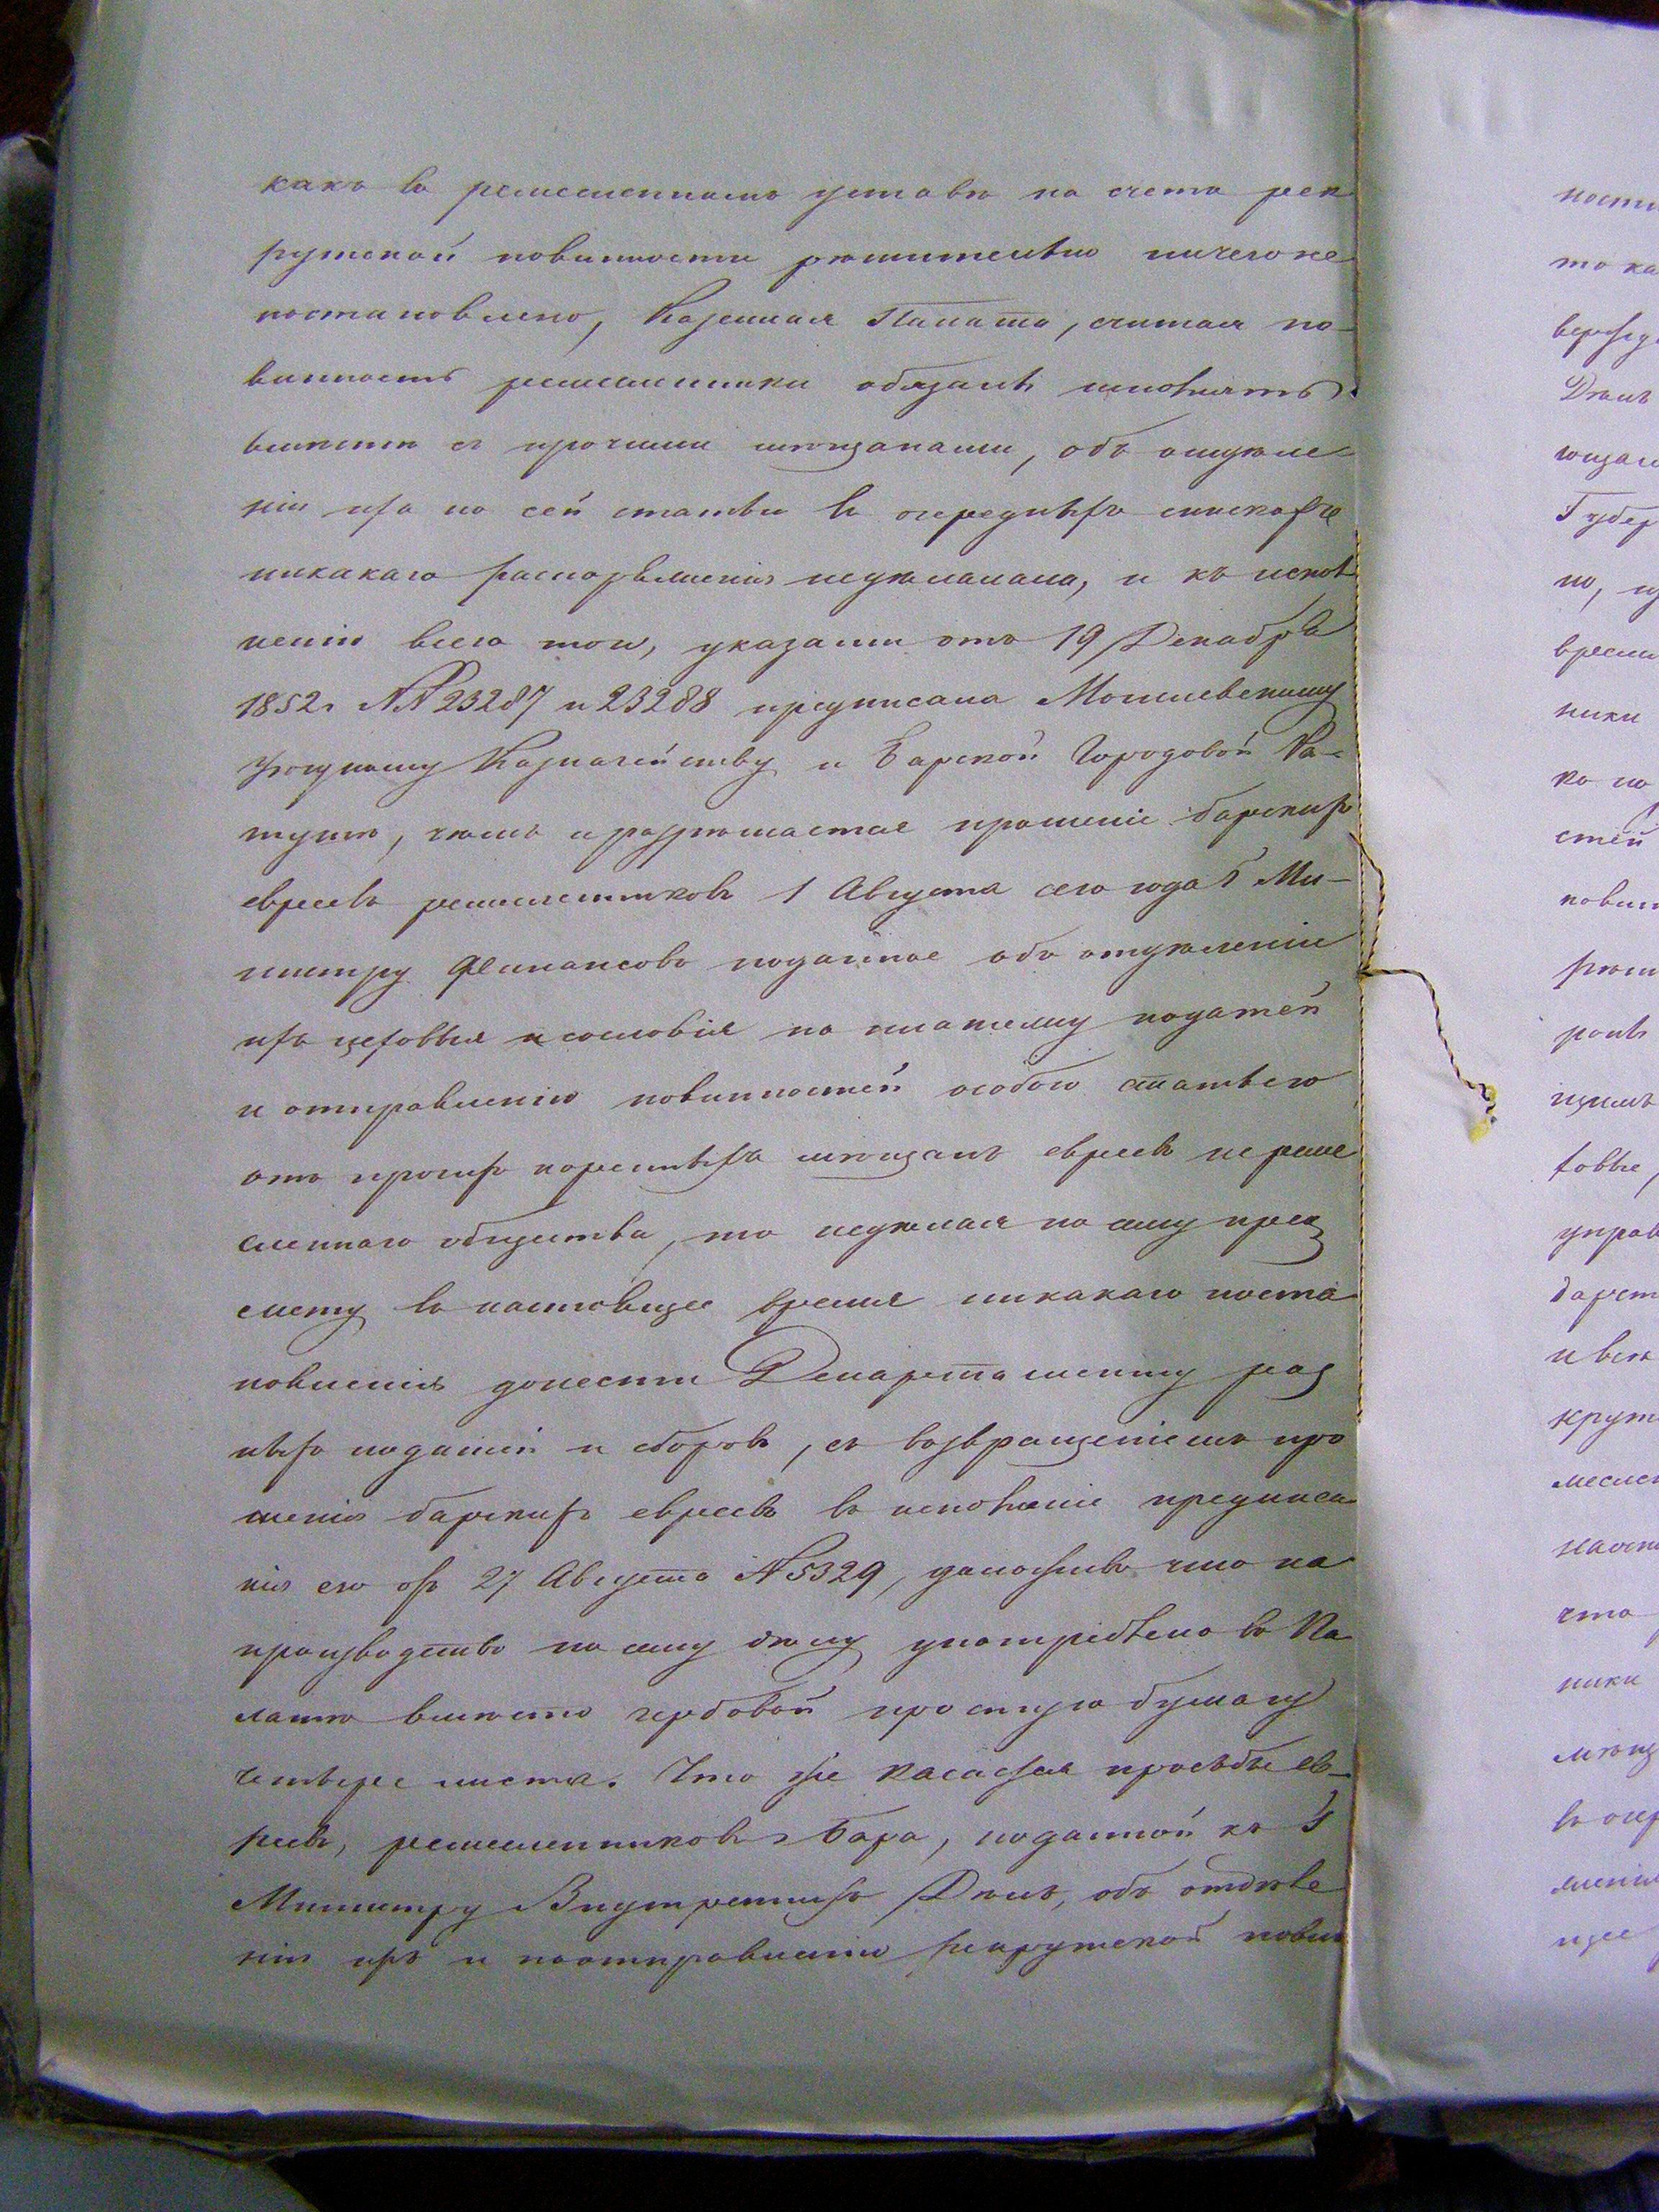 какъ въ ремесленномъ уставѣ на счетъ рек
рутской повинности рѣшительно ничего не
постановлено, Казенная Палата, считая по-
винность ремесленники обязаны исполнять
вмѣстѣ съ прочими мѣщанами, объ отдѣле
ніи ихъ по сей статьи въ очередныхъ спискахъ
никакаго распоряженія недѣлала, и къ испол
ненію всего того, указами отъ 19 Декабря
1852 г №№ 23287 и 23288 предписала Могилевскому
Уѣздному Казначейству и Барской Городовой Ра-
тушѣ, чѣмъ и разрѣшается прошеніе барскихъ
евреевъ ремесленниковъ 1 Августа сего года Г Ми-
нистру Финансовъ поданное объ отдѣленіи
ихъ цеховыя и сословія по платежу податей
и отправленію повинностей особою статьею
отъ прочихъ коренныхъ мѣщанъ евреевъ не реме
сленнаго общества, то недѣлая по сему пред
смету въ настоящее время никакаго поста
новленія донести Департаменту раз
ныхъ податей и сборовъ, съ возвращеніемъ про
шенія барскихъ евреевъ въ исполненіе предписа
нія его отъ 27 Августа № 5329, доложивъ что на
производство по сему дѣлу употреблено въ Па
латѣ вмѣсто гербовой простую бумагу
четыре листа. Что же касается просьбы ев-
реевъ, ремесленниковъ г Бара, поданной къ Г
Министру Внутреннихъ Дѣлъ, объ отдѣле
ніи ихъ и по отправленію рекрутской повин